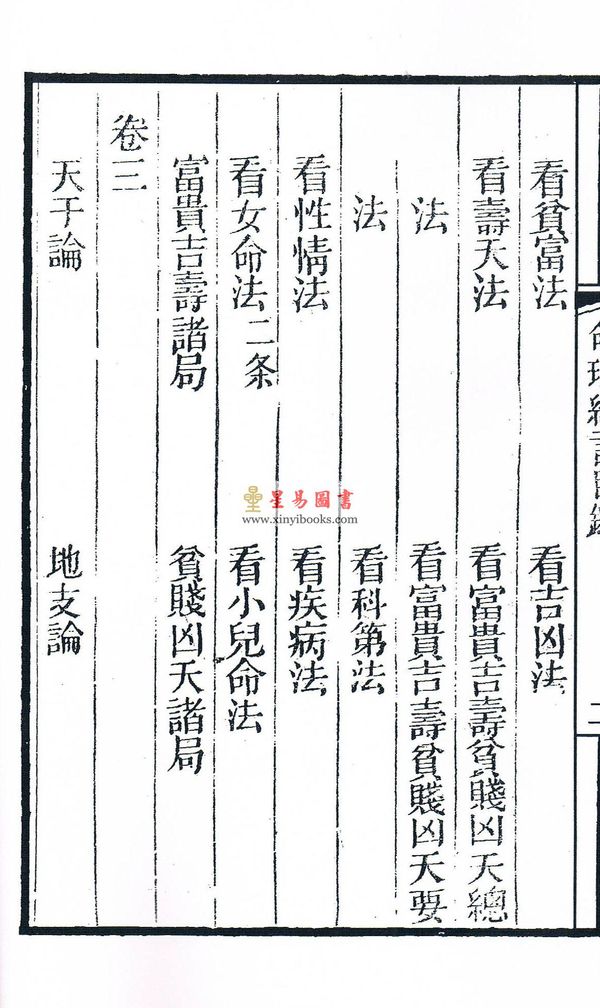 看貧富法　看吉凶法
看壽夭法　看富貴吉壽貧賤凶夭總
法　看富貴吉壽貧賤凶夭要
法　看科第法
看性情法　看疾病法
看女命法二条　看小兒命法
富貴吉壽諸局　貧賤凶夭諸局
卷三
天干論　地支論
星易圖書
www.xinyibooks.com